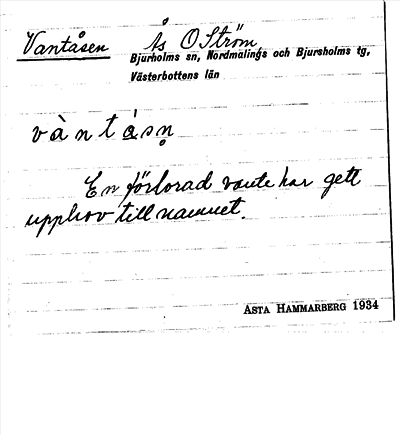 Vantåsen Ås O Ström
Bjurholms sn, Nordmalings och Bjursholms tg,
Västerbottens län
vàntǻsn̥
En förlorad vante har gett
upphov till namnet.
ASTA HAMMARBERG 1934